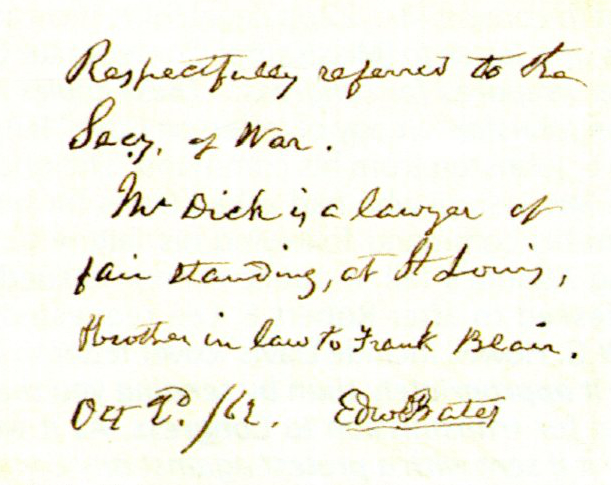 Respectfully referred to the
Secy. of War.
Mr Dick is a lawyer of
fair standing, at St Louis,
& brother in law to Frank Blair.
Oct 2d. /62. Edw Bates